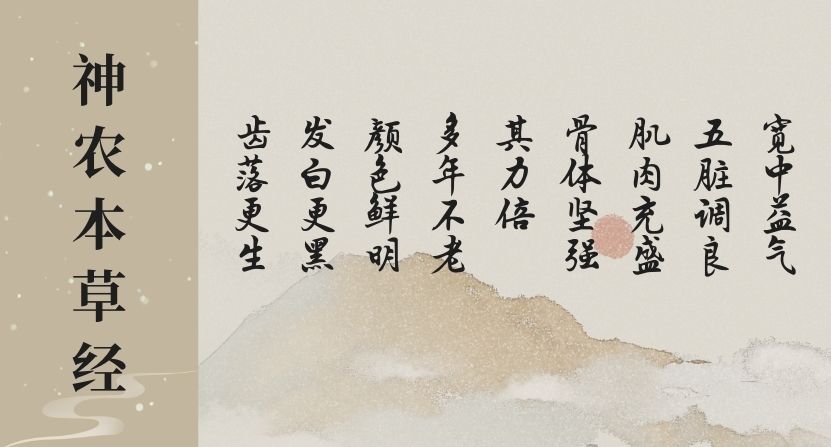 神农本草经
宽中益气
五脏调良
肌肉充盛
骨体坚强
其力倍
多年不老
颜色鲜明
发白更黑
齿落更生